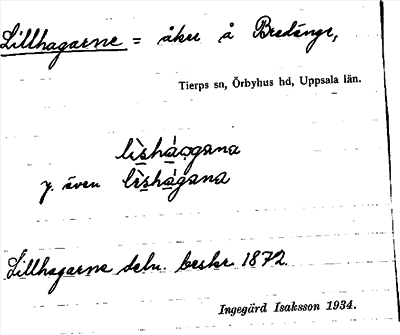 Lillhagarne = åker å Bredänge,
Tierps sn, Örbyhus hd, Uppsala län.
lìshágana
y. även lìshágana
Lillhagarne deln. beskr. 1872.
Ingegärd Isaksson 1934.